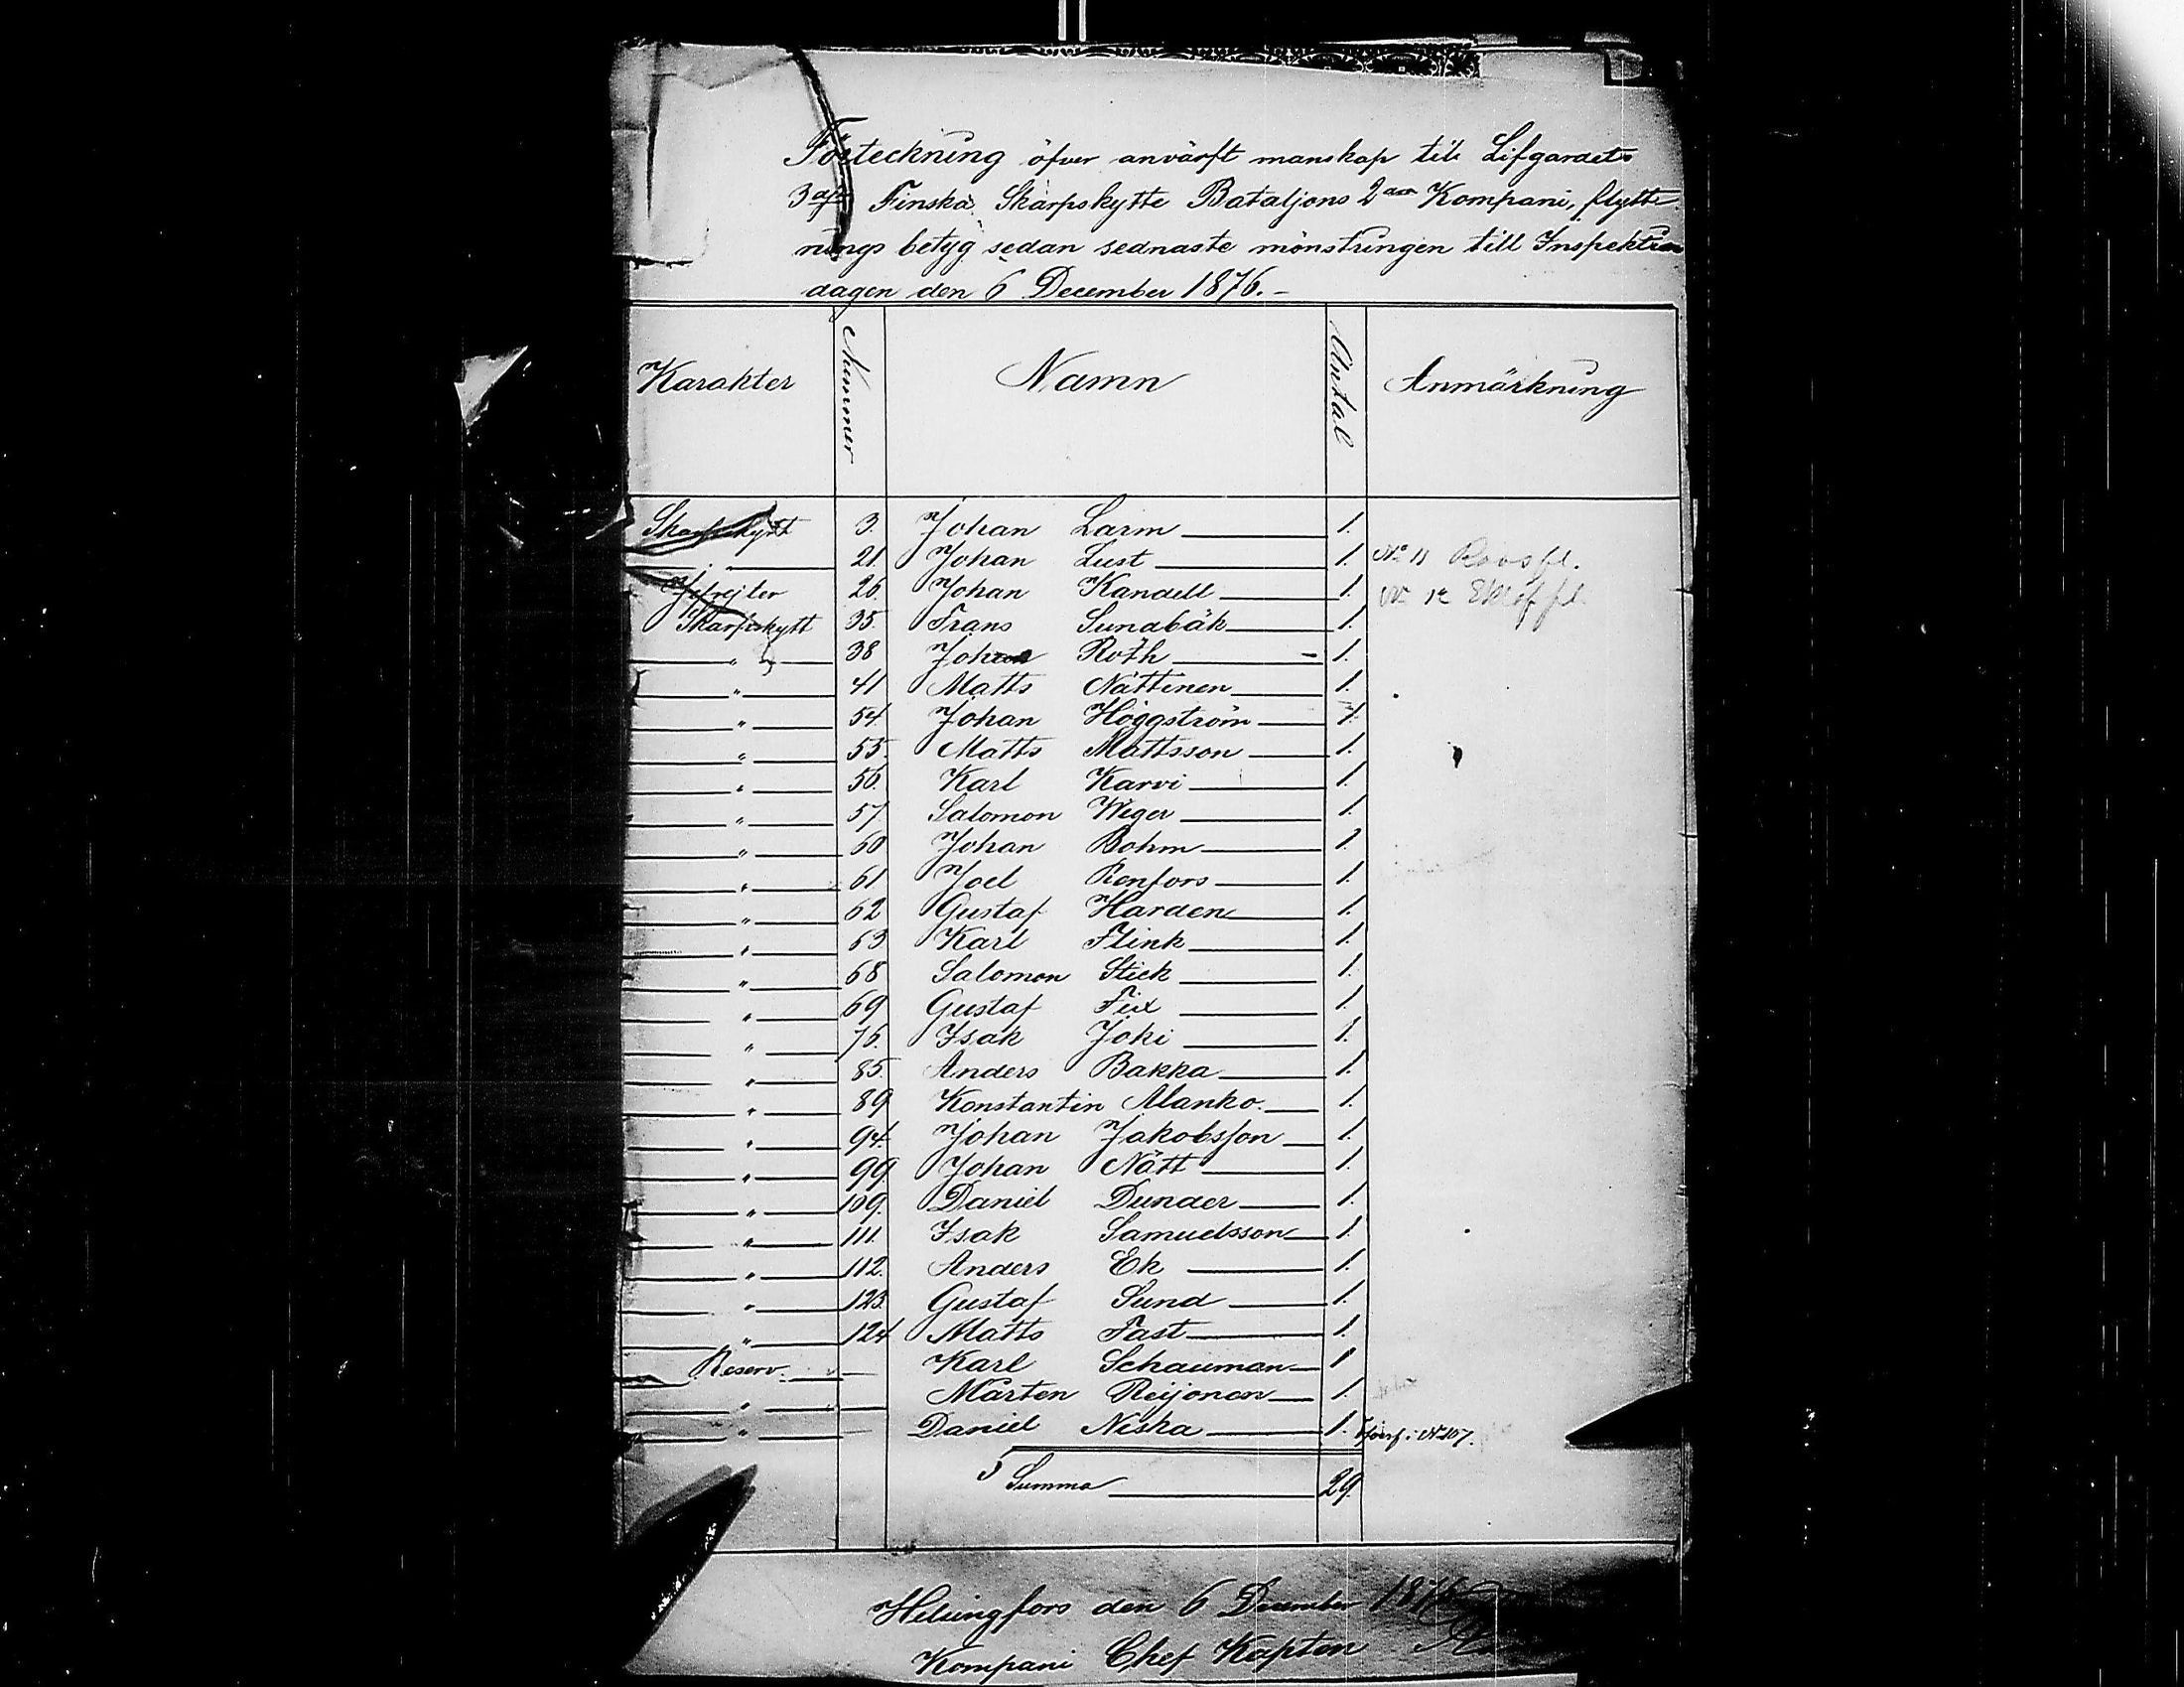 Förteckning öfver anvärft manskap till Lifgardets
3dje Finska Skarpskytte Bataljons 2dra Kompani, flytt
nings betyg sedan sednaste mönstringen till Inspektions
dagen den 6 December 1876.-
Karakter Nummer Namn Antal Anmärkning
Skarpskytt 3. Johan Larm 1.
" 21. Johan Lust 1. No 11 Roos fl.
Gefrejter 26. Johan Kandell 1. No 12 Eklöf fl.
Skarpskytt 35. Frans Sundbäk 1.
" 38 Johan Röth - 1.
" 41 Matts Nättinen 1.
" 54. Johan Höggström 1.
" 55. Matts Mattsson 1.
" 56. Karl Karvi 1.
" 57. Salomon Weger 1.
" 60 Johan Bohm 1
" 61 Joel Renfors 1.
" 62 Gustaf Harden 1.
" 63. Karl Flink 1.
" 68 Salomon Stick 1.
" 69 Gustaf Fix 1.
" 76. Isak Joki 1.
" 85. Anders Bakka 1.
" 89 Konstantin Alanko. 1.
" 94. Johan Jakobsson 1.
" 99. Johan Nätt 1.
" 109. Daniel Dunder 1.
" 111. Isak Samuelsson 1.
" 112. Anders Ek 1.
" 123. Gustaf Sund 1.
" 124 Matts Fast 1.
Reserv. Karl Schauman 1
" Mårten Reijonen 1.
" Daniel Niska 1. No 107.
Summa 29.
Helsingfors den 6 December 1876
Kompani Chef Kapten